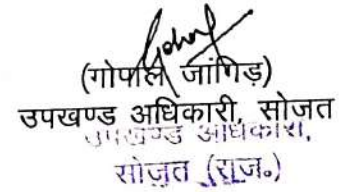 (गोपाल जांगिड़)
उपखण्ड अधिकारी, सोजत
उपखण्ड अधिकारी,
सोजत (राज.)